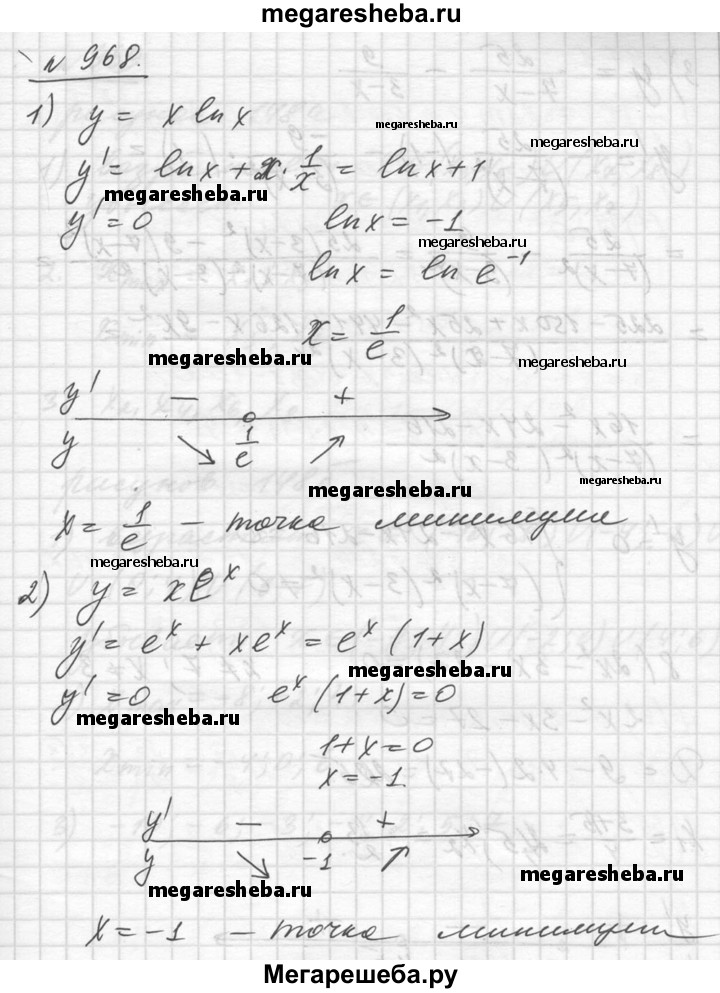 megaresheba.ru
№ 968.
1) y = x ln x
megaresheba.ru
megaresheba.ru
y' = ln x + x · 1/x = ln x + 1
megaresheba.ru
y' = 0 ln x = -1
megaresheba.ru
ln x = ln e⁻¹
x = 1/e
megaresheba.ru
y' − +
y 1/e
megaresheba.ru
megaresheba.ru
x = 1/e − точка минимума
megaresheba.ru
2) y = xeˣ
y' = eˣ + xeˣ = eˣ (1+x)
megaresheba.ru
y' = 0 eˣ (1+x) = 0
megaresheba.ru
1 + x = 0
x = -1.
y' − +
y -1
megaresheba.ru
megaresheba.ru
x = -1 − точка минимума
Мегарешеба.ру